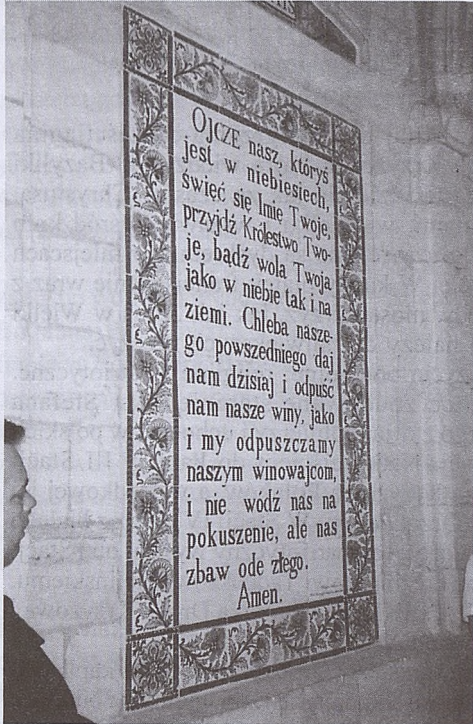 OJCZE nasz, któryś
jest w niebiesiech,
święć się Imię Twoje,
przyjdź Królestwo Two-
je, bądź wola Twoja
jako w niebie tak i na
ziemi. Chleba nasze-
go powszedniego daj
nam dzisiaj i odpuść
nam nasze winy, jako
i my odpuszczamy
naszym winowajcom,
i nie wódź nas na
pokuszenie, ale nas
zbaw ode złego.
Amen.